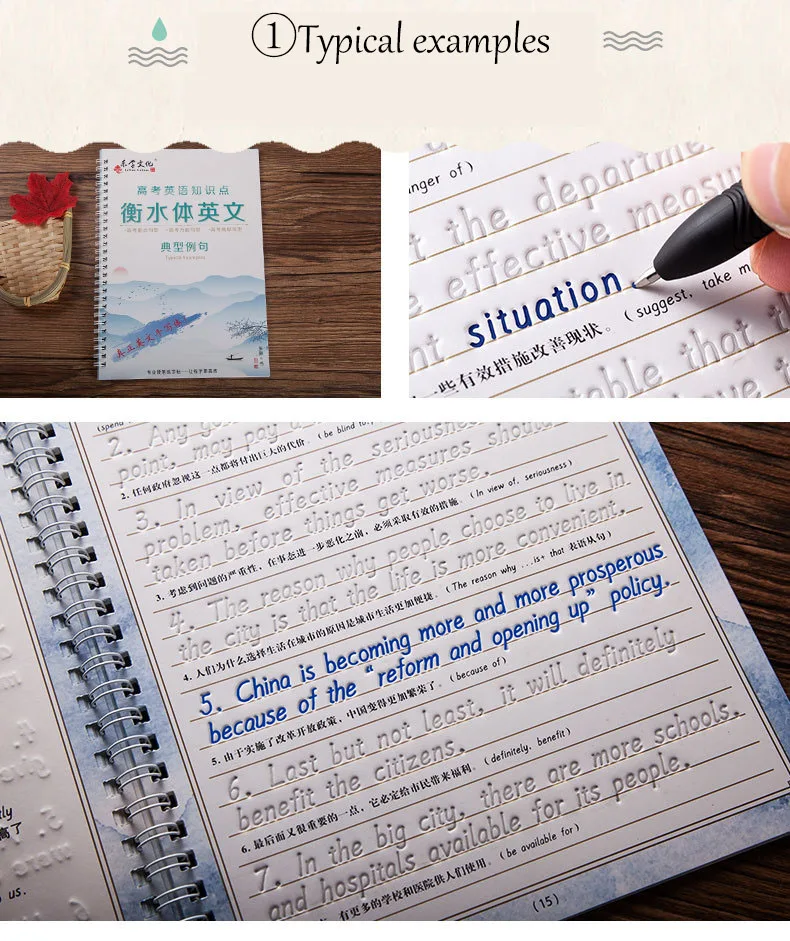 ①Typical examples
乐学文化
高考英语知识点
衡水体英文
典型例句
Typical Examples
nger of)
t the departme
e effective measu
nt situation. (suggest, take m
一些有效措施改善现状。
table that t
(spend
2. Any go
point, may pay a
2. 任何政府忽视这一点都将付出巨大的代价。(be blind to,
3. In view of the seriousness
problem, effective measures should
taken before things get worse.
3. 考虑到问题的严重性，在事态进一步恶化之前，必须采取有效的措施。(In view of, seriousness)
4. The reason why people choose to live in
the city is that the life is more convenient.
4. 人们为什么选择生活在城市的原因是城市生活更加便捷。(The reason why ...is+ that 表语从句)
5. China is becoming more and more prosperous
because of the "reform and opening up" policy.
5. 由于实施了改革开放政策，中国变得更加繁荣了。(because of)
6. Last but not least, it will definitely
benefit the citizens.
6. 最后而又很重要的一点，它必定给市民带来福利。(definitely, benefit)
7. In the big city, there are more schools.
and hospitals available for its people.
有更多的学校和医院供人们使用。(be available for)
(15)
高了
us.